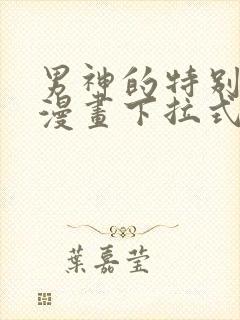 男神的特别
漫畫下拉式
葉嘉莹